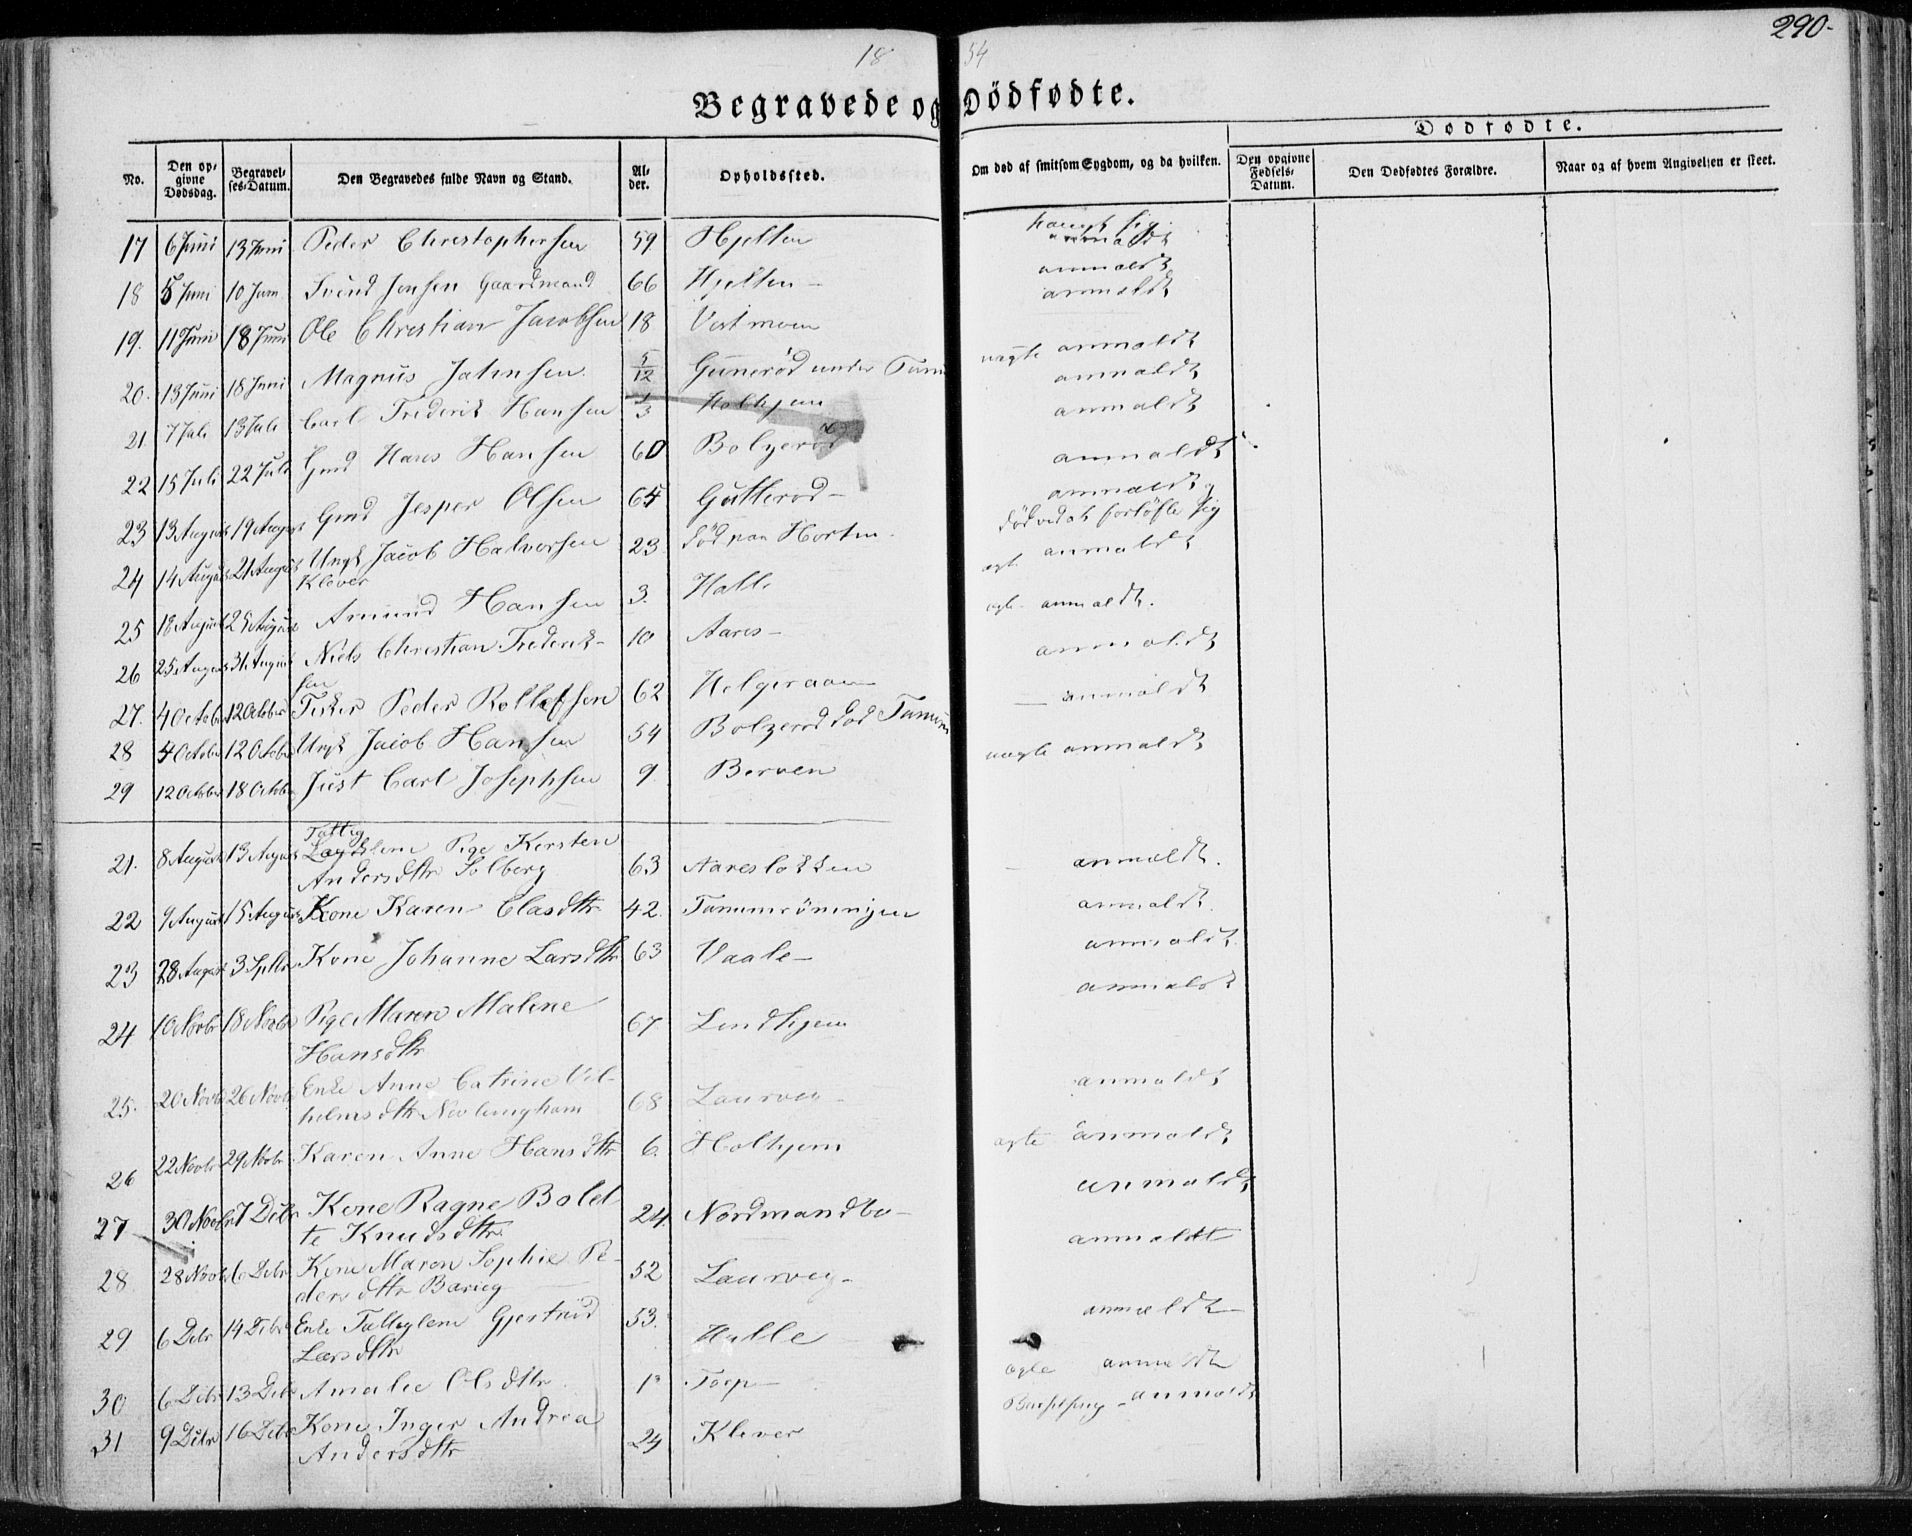 290.
18 54
Begravede og Dödfødte.
Dødfødte.
No. Den opgivne Dødsdag. Begravelses-Datum. Den Begravedes fulde Navn og Stand. Alder. Opholdssted. Om død af smitsom Sygdom, og da hvilken. Den opgivne Fødsels-Datum. Den Dødfødtes Forældre. Naar og af hvem Angivelsen er skeet.
17 6 Juni 13 Juni Peder Christophersen 59 Hjelten hængt sig anmaldt
18 5 Juni 10 Juni Svend Jensen Gaardmand 66 Hjelten - anmaldt
19. 11 Juni 18 Juni Ole Christian Jacobsen 18 Vestmoen anmaldt
20. 13 Juni 18 Juni Magnus Jahnsen 5/12 Gunerød under uægte anmaldt
21 7 Juli 13 Juli Carl Frederik Hansen 1/3 Holhjem anmaldt
22 15 Juli 22 Juli Gmd Hans Hansen 60 Bolzerød anmaldt
23 13 August 19 August Gmd Jesper Olsen 64 Gutterød - anmaldt
24 14 August 21 August Ungk Jacob Halvorsen 23 død paa Horten anmaldt
Klever død ved at forløfte sig
25 18 August 25 August Amund Hansen 3. Halle ægt. anmaldt
26 25 August 31 August Niels Christian Frederik- 10 Aares - ægte anmaldt.
sen
27. 4 October 12 October Fisker Peder Rollefsen 62 Helgeraaen anmaldt
28 4 October 12 October Ungk Jacob Hansen 54 Bolzerød død anmaldt
29 12 October 18 October Just Carl Josephsen 9. Berven uægte anmaldt
21. 8 August 13 August Fattig
Lægdslem Pige Kersten
Andersdtr Solberg 63 Aaresløkken anmaldt.
22 9 August 15 August Kone Karen Clasdtr 42. Tanumrönningen anmaldt.
23 28 August 3 Septbr Kone Johanne Larsdtr 63 Vaale - anmaldt.
24 10 Novbr 18 Novbr Pige Maren Malene
Hansdtr 67 Lindhjem anmaldt
25. 20 Novb 26 Novb Enke Anne Catrine Vil-
helmsdtr 68 Laurvig - anmaldt
26 22 Novbr 29 Novbr Karen Anne Hansdtr 6. Holhjem ægte anmaldt
27 30 Novbr 7 Dcbr Kone Ragne Bolet-
te Knudsdtr 24. Nordmandbo - anmaldt
28 28 Novb 6 Debr Kone Maren Sophie Pe-
dersdtr 52 Laurvig - anmaldt
29 6 Debr 14 Debr Enke Fattiglem Gjertrud
Larsdtr 53. Halle anmældt
30 6 Debr 13 Deb Amalie Olsdtr 1 Torp ægte anmaldt
31 9 Debr 16 Debr Kone Inger Andrea
Andersdtr 24 Klever anmaldt